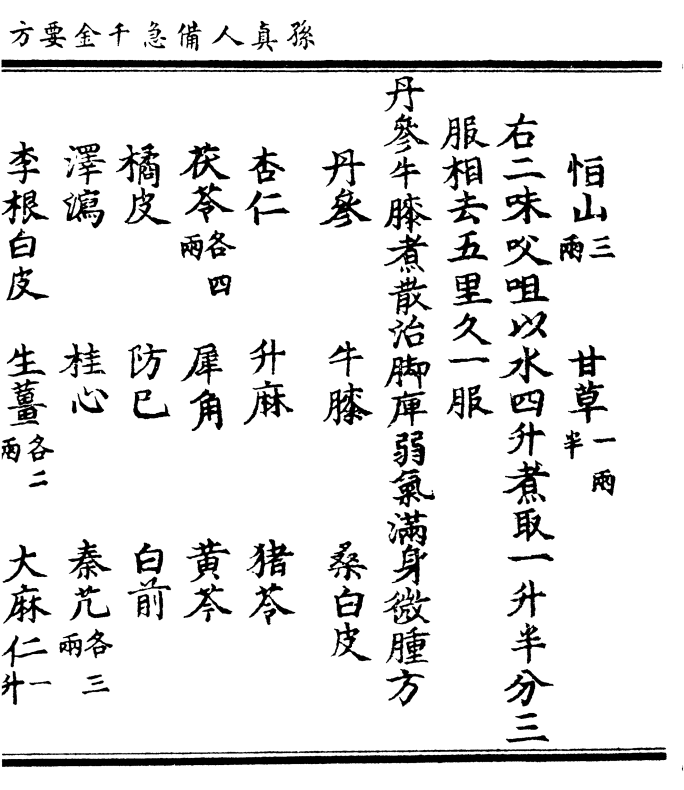 孫真人備急千金要方
恒山三兩 甘草一兩半
右二味㕮咀以水四升煮取一升半分三
服相去五里久一服
丹參牛膝煮散治脚痹弱氣滿身微腫方
丹參 牛膝 桑白皮
杏仁 升麻 猪苓
茯苓各四兩 犀角 黄芩
橘皮 防已 白前
澤瀉 桂心 秦艽各三兩
李根白皮 生薑各二兩 大麻仁二升一